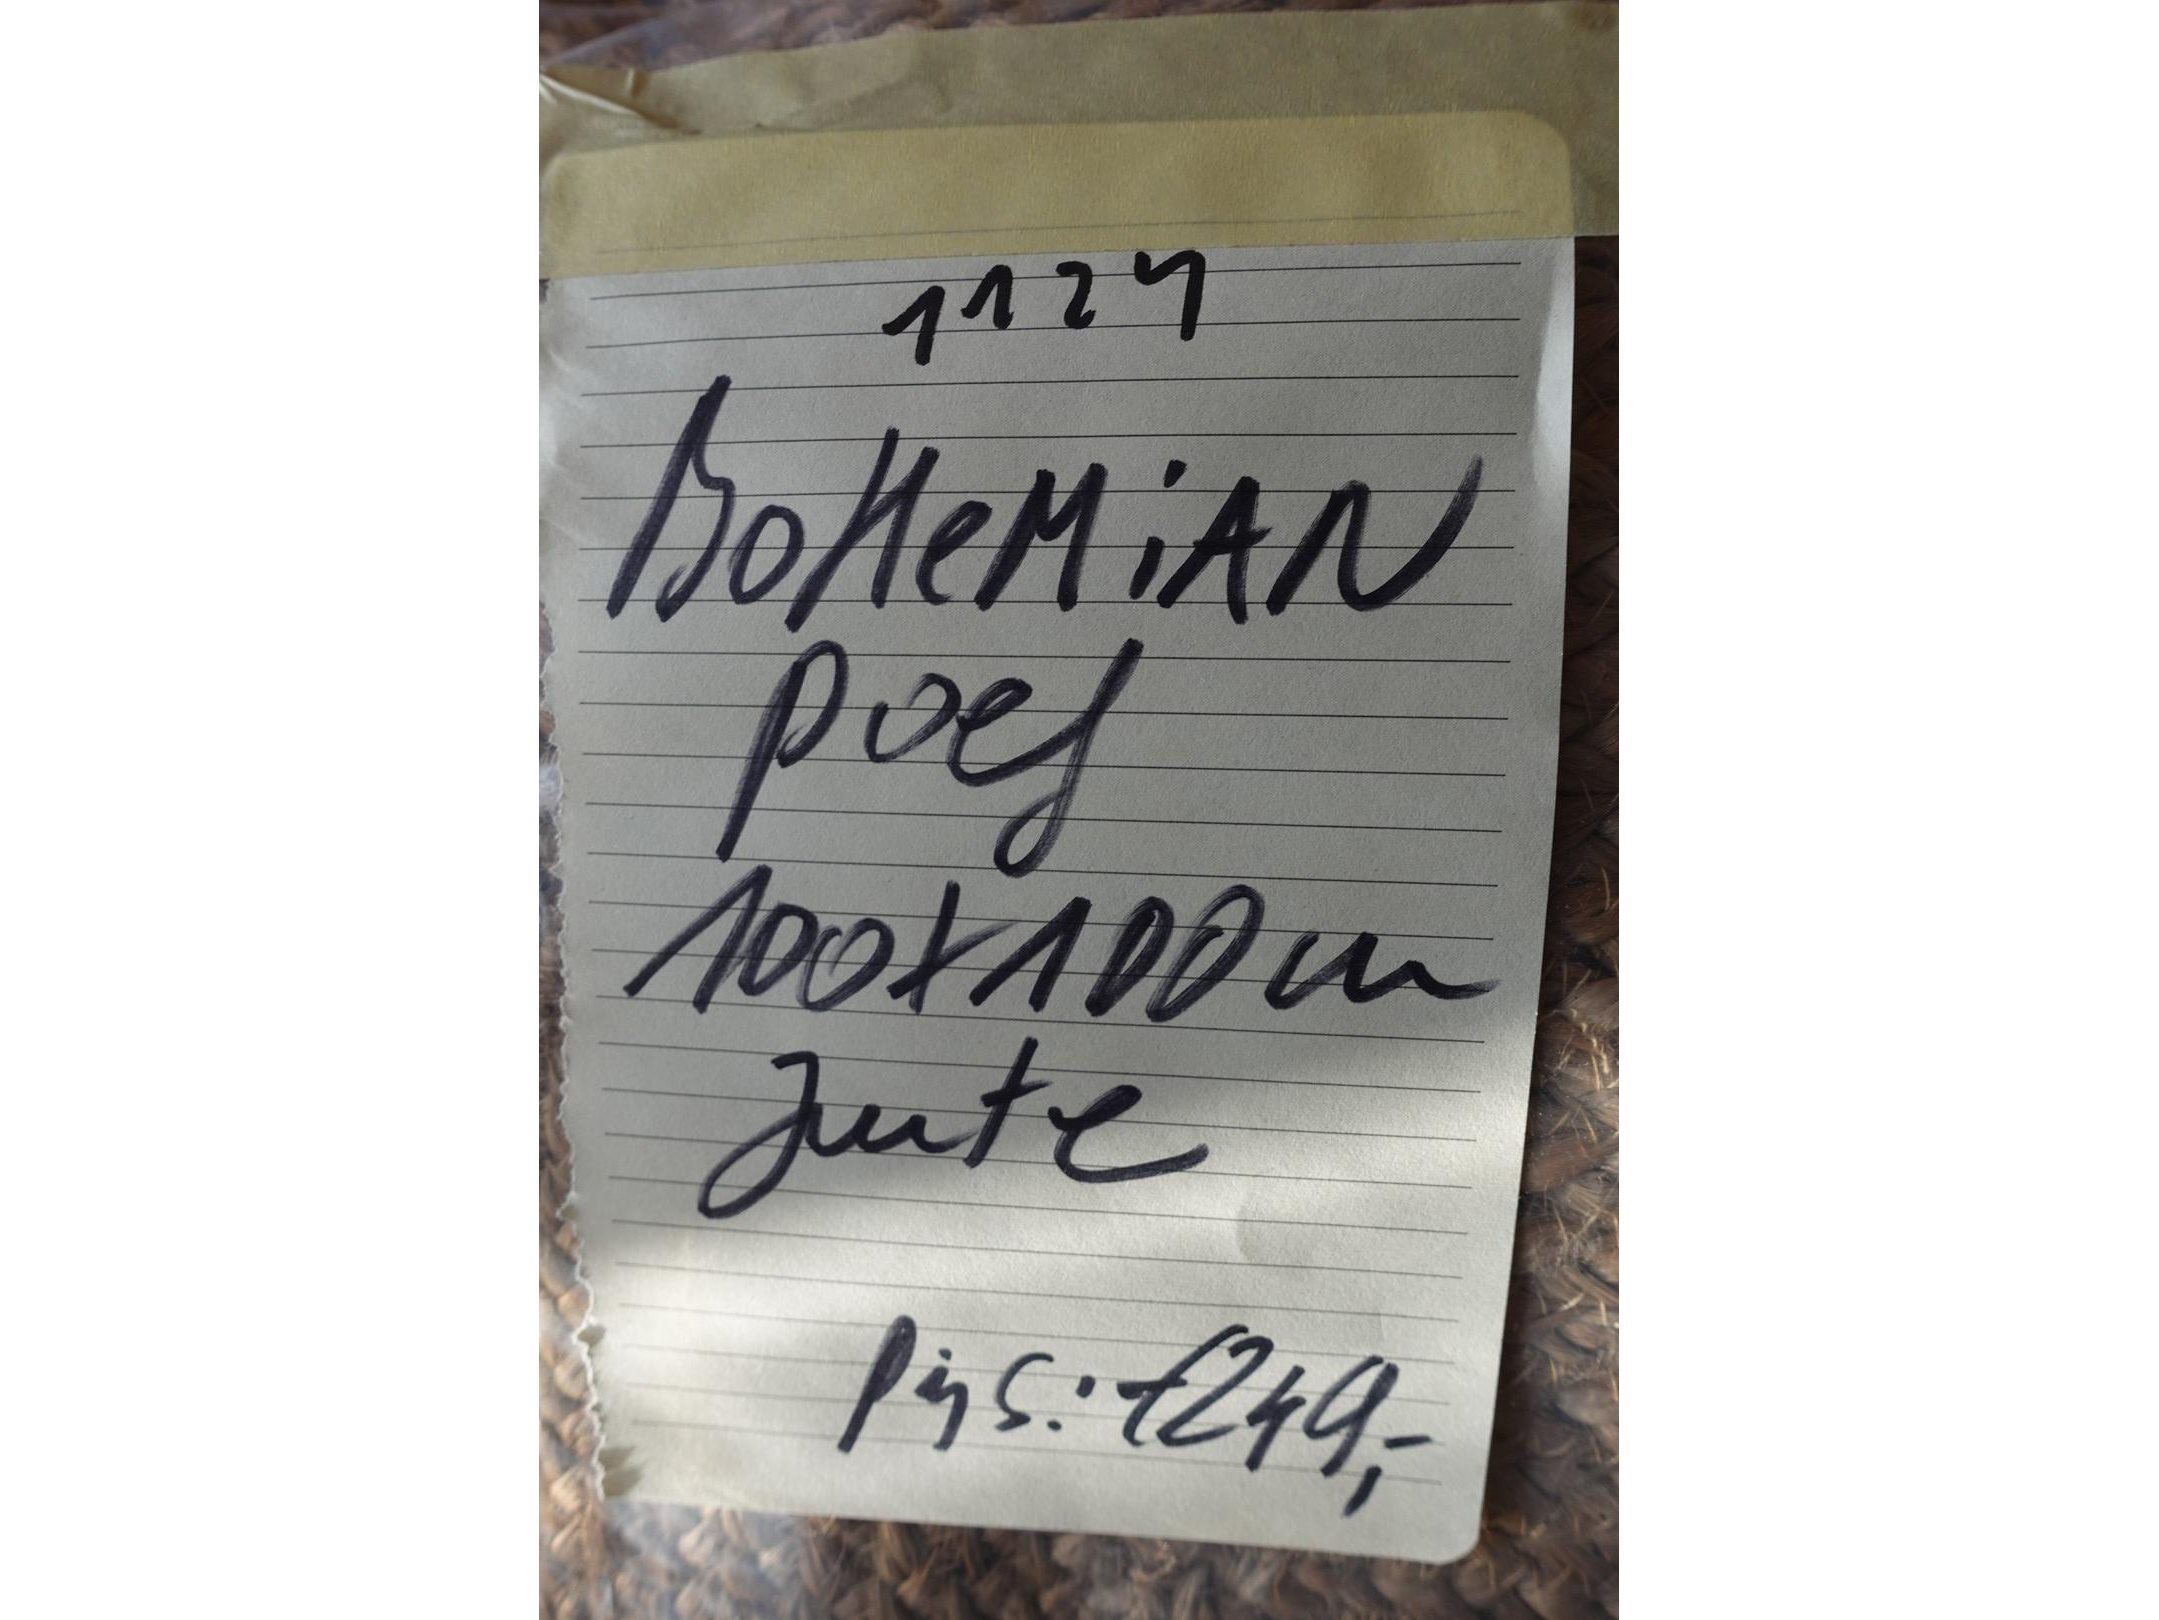 1124
BoHeMiAN
poef
100x100cm
Jute
Pijs.: €249,-